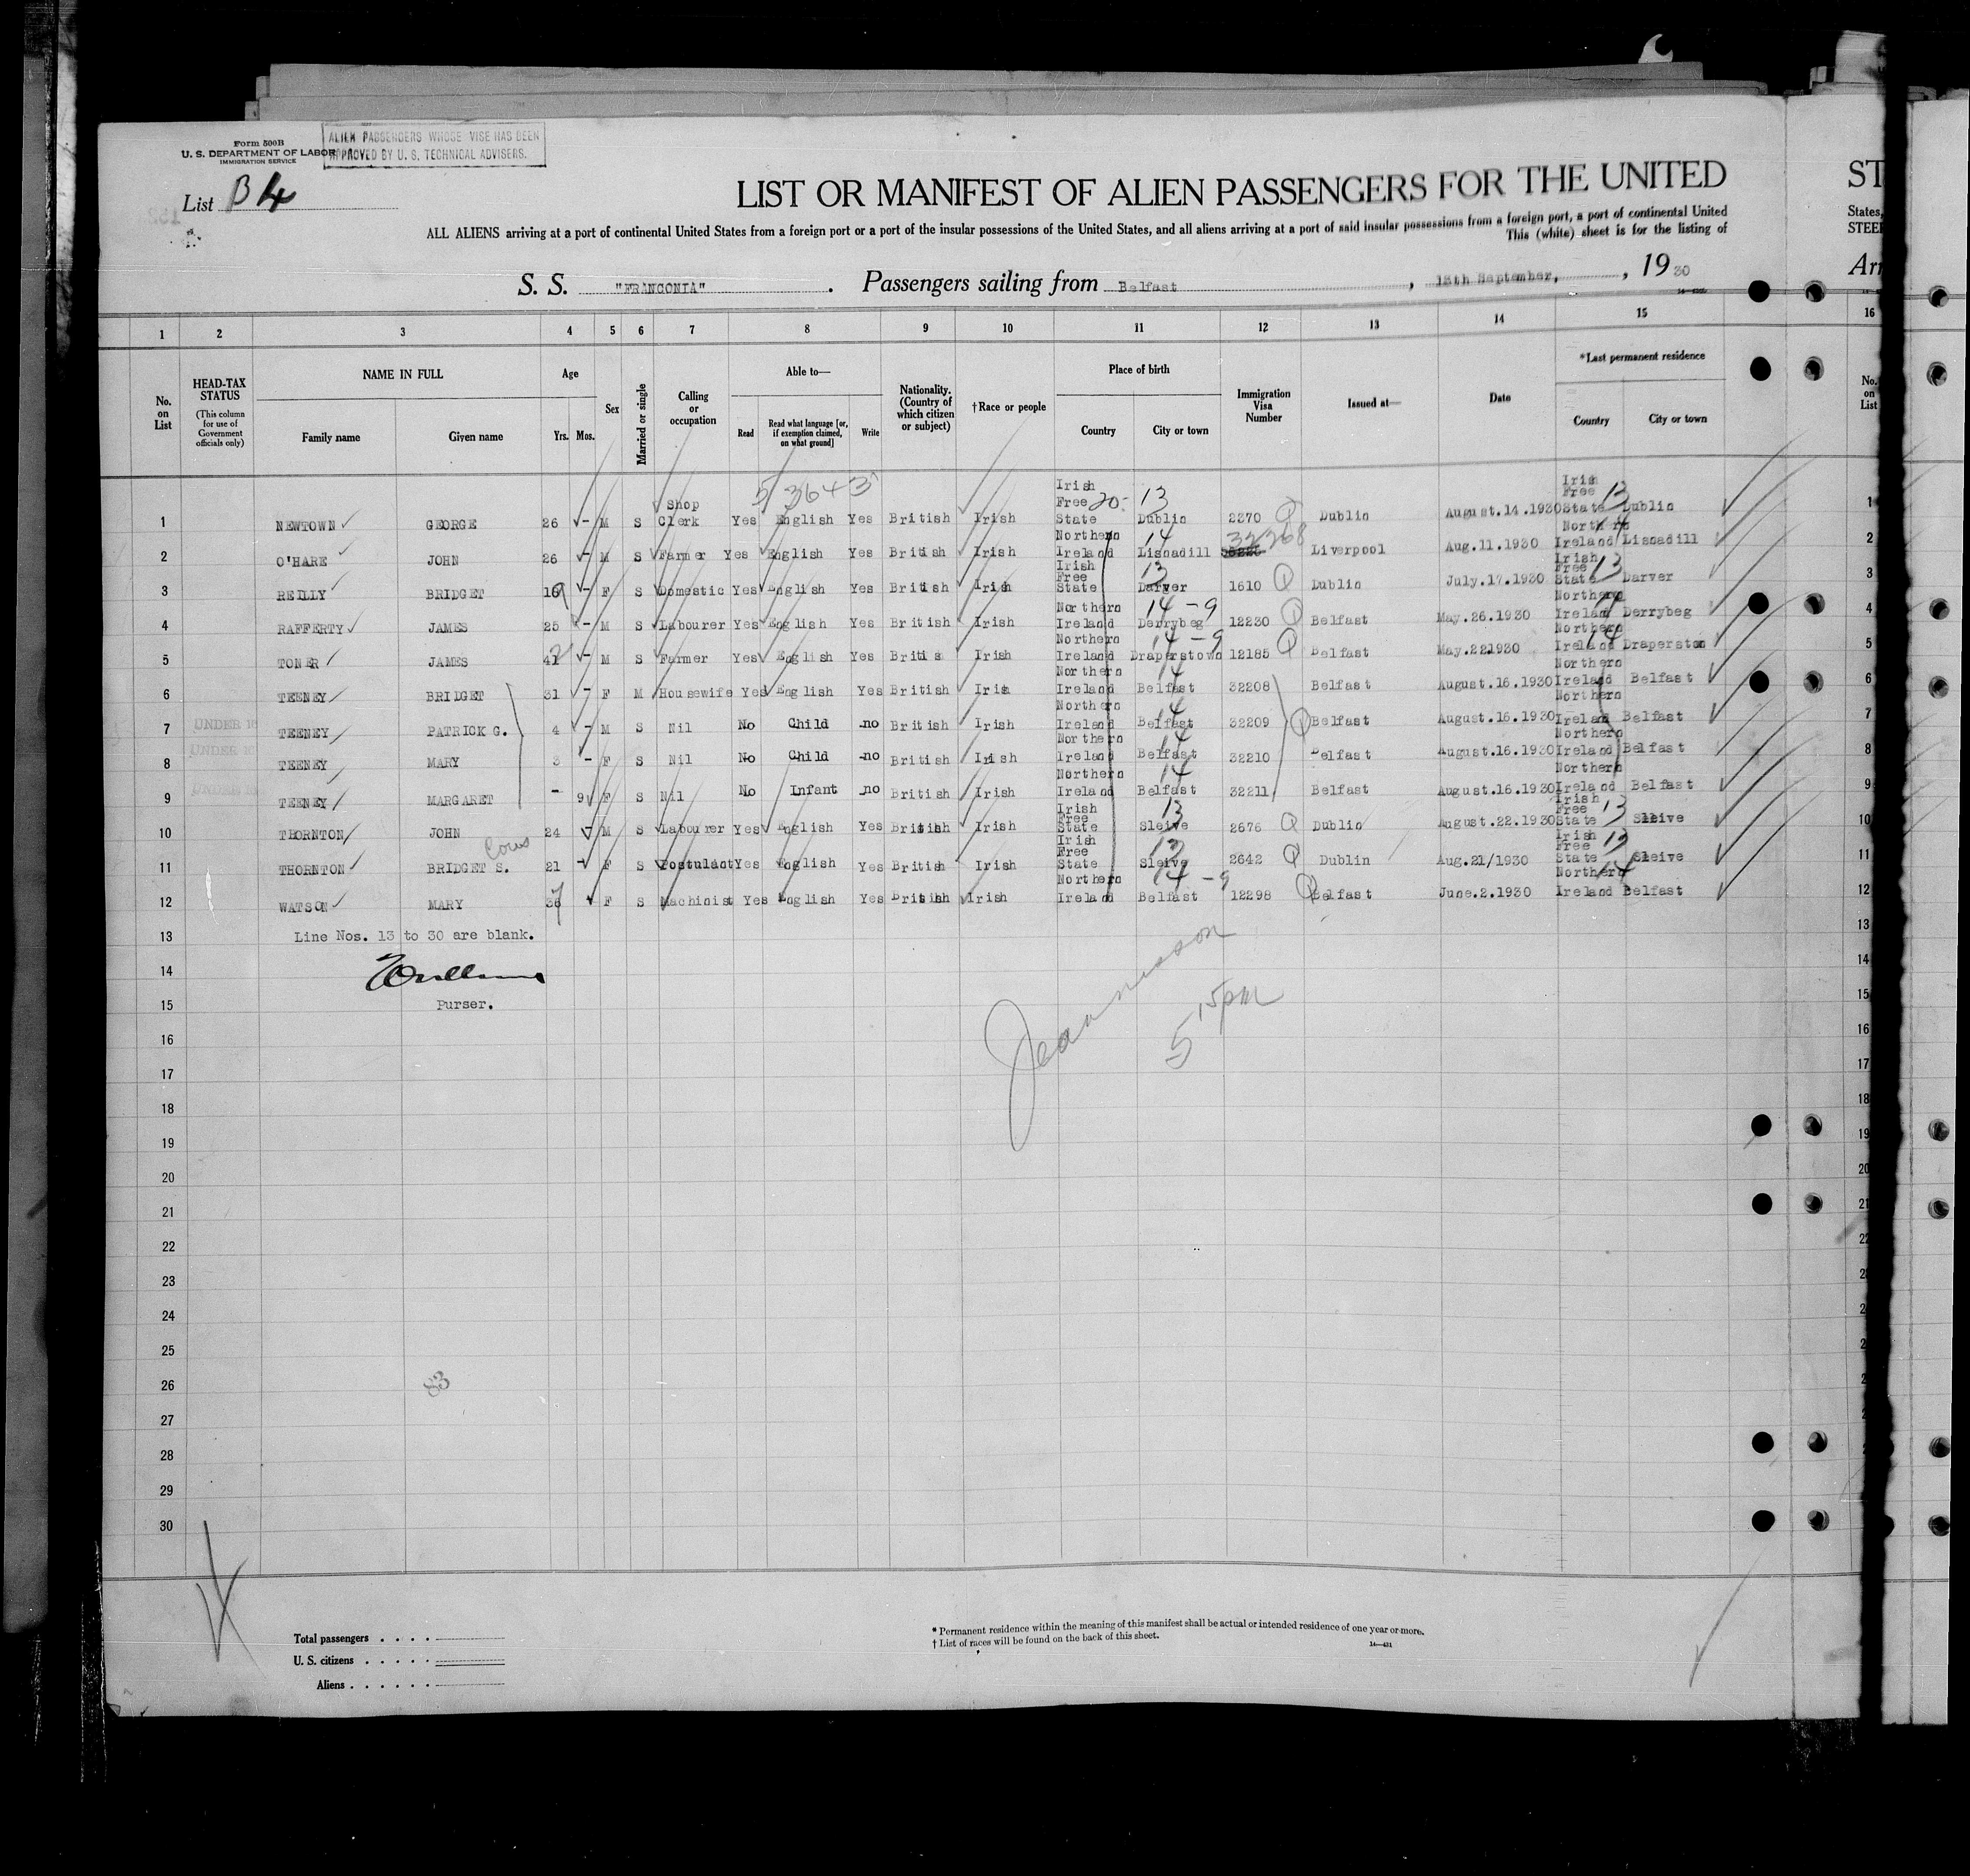 Form 500B
U. S. DEPARTMENT OF LABOR
IMMIGRATION SERVICE
ALIEN PASSENGERS WHOSE VISE HAS BEEN
APPROVED BY U. S. TECHNICAL ADVISERS.
List B4
LIST OR MANIFEST OF ALIEN PASSENGERS FOR THE UNITED
ST
ALL ALIENS arriving at a port of continental United States from a foreign port or a port of the insular possessions of the United States, and all aliens arriving at a port of said insular possessions from a foreign port, a port of continental United
States,
This (white) sheet is for the listing of
S. S. "FRANCONIA". Passengers sailing from Belfast, 13th September, , 1930
1 2 3 4 5 6 7 8 9 10 11 12 13 14 15 16
No. on List
HEAD-TAX STATUS
(This column for use of Government officials only)
NAME IN FULL
Family name Given name
Age
Yrs. Mos.
Sex
Married or single
Calling or occupation
Able to—
Read
Read what language [or, if exemption claimed, on what ground]
Write
Nationality. (Country of which citizen or subject)
†Race or people
Place of birth
Country City or town
Immigration Visa Number
Issued at—
Date
*Last permanent residence
Country City or town
No. on List
5 3643
1 NEWTOWN GEORGE 26 - M S Shop Clerk Yes English Yes British Irish Irish Free State 20- 13 Dublin 2370 Q Dublin August.14.1930 Irish Free State 13 Dublin 1
2 O'HARE JOHN 26 - M S Farmer Yes English Yes British Irish Northern Ireland 14 Lisnadill 32268 Liverpool Aug.11.1930 Northern Ireland 14 Lisnadill 2
3 REILLY BRIDGET 19 - F S Domestic Yes English Yes British Irish Irish Free State 13 Darver 1610 Q Dublin July.17.1930 Irish Free State 13 Darver 3
4 RAFFERTY JAMES 25 - M S Labourer Yes English Yes British Irish Northern Ireland 14-9 Derrybeg 12230 Q Belfast May.26.1930 Northern Ireland 14 Derrybeg 4
5 TONER JAMES 41 2 - M S Farmer Yes English Yes Britis Irish Northern Ireland 14-9 Draperstown 12185 Q Belfast May.221930 Northern Ireland 14 Draperston 5
6 TEENEY BRIDGET 31 - F M Housewife Yes English Yes British Irish Northern Ireland 14 Belfast 32208 Belfast August.16.1930 Northern Ireland Belfast 6
UNDER 16
7 TEENEY PATRICK G. 4 - M S Nil No Child no British Irish Northern Ireland 14 Belfast 32209 Q Belfast August.16.1930 Northern Ireland Belfast 7
UNDER 16
8 TEENEY MARY 3 - F S Nil No Child no British Irish Northern Ireland 14 Belfast 32210 Belfast August.16.1930 Northern Ireland Belfast 8
UNDER 16
9 TEENEY MARGARET - 9 F S Nil No Infant no British Irish Northern Ireland 14 Belfast 32211 Belfast August.16.1930 Northern Ireland Belfast 9
10 THORNTON JOHN 24 - M S Labourer Yes English Yes British Irish Irish Free State 13 Sleive 2676 Q Dublin August.22.1930 Irish Free State 13 Sleive 10
Cous
11 THORNTON BRIDGET S. 21 - F S Postulant Yes English Yes British Irish Irish Free State 13 Sleive 2642 Q Dublin Aug.21/1930 Irish Free State 13 Sleive 11
12 WATSON MARY 36 7 F S Machinist Yes English Yes British Irish Northern Ireland 14-9 Belfast 12298 Q Belfast June.2.1930 Northern Ireland 14 Belfast 12
13 Line Nos. 13 to 30 are blank. 13
14 14
15 Purser. 15
5 15pm
16 16
17 17
18 18
19 19
20 20
21 21
22
23
24
25
26
83
27
28
29
30
Total passengers . . . .
U. S. citizens . . . . .
Aliens . . . . . .
* Permanent residence within the meaning of this manifest shall be actual or intended residence of one year or more.
† List of races will be found on the back of this sheet.